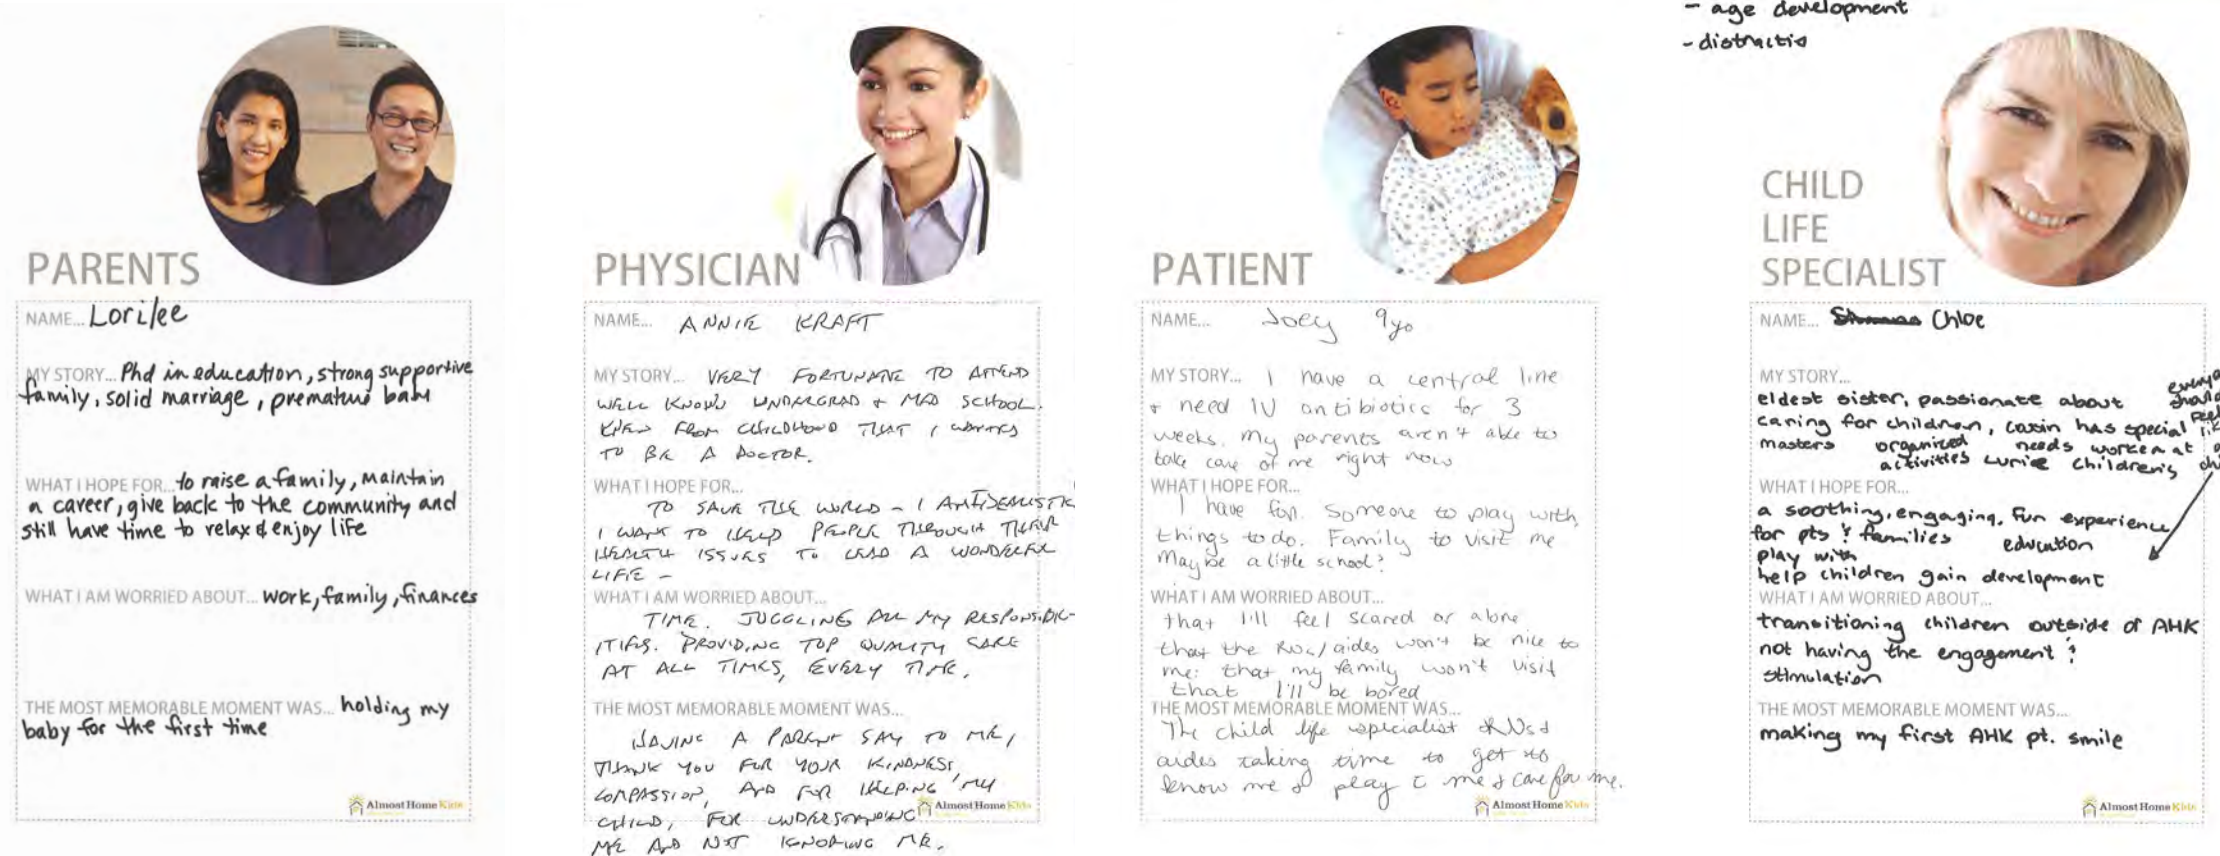 PARENTS
NAME... Lorilee
MY STORY... Phd in education, strong supportive
family, solid marriage, premature baby
WHAT I HOPE FOR... to raise a family, maintain
a career, give back to the community and
still have time to relax & enjoy life
WHAT I AM WORRIED ABOUT... work, family, finances
THE MOST MEMORABLE MOMENT WAS... holding my
baby for the first time
Almost Home Kids
PHYSICIAN
NAME... ANNIE KRAFT
MY STORY... VERY FORTUNATE TO ATTEND
WELL KNOWN UNDERGRAD & MED SCHOOL.
KNEW FROM CHILDHOOD THAT I WANTED
TO BE A DOCTOR.
WHAT I HOPE FOR...
TO SAVE THE WORLD - I AM IDEALISTIC
I WANT TO HELP PEOPLE THROUGH THEIR
HEALTH ISSUES TO LEAD A WONDERFUL
LIFE -
WHAT I AM WORRIED ABOUT...
TIME. JUGGLING ALL MY RESPONSIBIL-
ITIES. PROVIDING TOP QUALITY CARE
AT ALL TIMES, EVERY TIME.
THE MOST MEMORABLE MOMENT WAS...
HAVING A PARENT SAY TO ME,
THANK YOU FOR YOUR KINDNESS,
COMPASSION, AND FOR HELPING MY
CHILD, FOR UNDERSTANDING
ME AND NOT IGNORING ME.
Almost Home Kids
PATIENT
NAME... Joey 9yo
MY STORY... I have a central line
& need IV antibiotics for 3
weeks. My parents aren't able to
take care of me right now
WHAT I HOPE FOR...
I have fun. Someone to play with,
things to do. Family to visit me
Maybe a little school?
WHAT I AM WORRIED ABOUT...
that I'll feel scared or alone
that the RNs/aides won't be nice to
me: that my family won't visit
that I'll be bored
THE MOST MEMORABLE MOMENT WAS...
The child life specialist & RNs &
aides taking time to get to
know me & play c me & care for me.
Almost Home Kids
- age development
- distractio
CHILD
LIFE
SPECIALIST
NAME... Chloe
MY STORY...
eldest sister, passionate about
caring for children, cousin has special
masters organized needs worked at
activities Lurie Children's
should
feel
WHAT I HOPE FOR...
a soothing, engaging, fun experience
for pts & families education
play with
help children gain development
WHAT I AM WORRIED ABOUT...
transitioning children outside of AHK
not having the engagement &
stimulation
THE MOST MEMORABLE MOMENT WAS...
making my first AHK pt. smile
Almost Home Kids